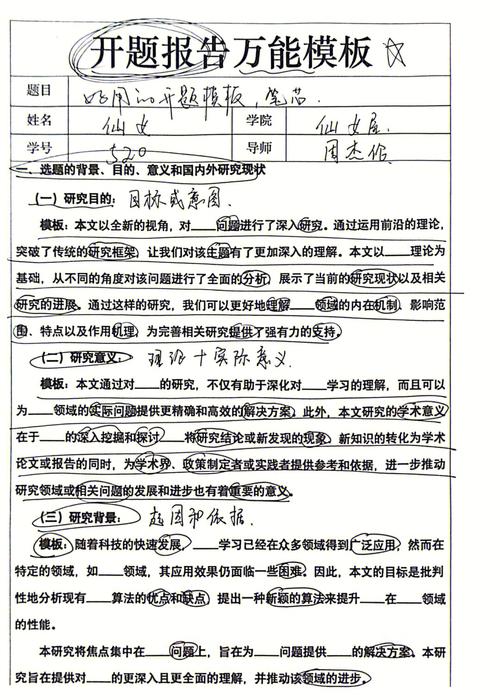 开题报告万能模板
题目 好用的开题模板,笔芯.
姓名 仙女 学院 仙女屋.
学号 520 导师 周杰伦.
一、选题的背景、目的、意义和国内外研究现状
(一)研究目的: 目标或意图.
模板:本文以全新的视角,对____问题进行了深入研究。通过运用前沿的理论,
突破了传统的研究框架,让我们对该主题有了更加深入的理解。本文以____理论为
基础,从不同的角度对该问题进行了全面的分析,展示了当前的研究现状以及相关
研究的进展。通过这样的研究,我们可以更好地理解____领域的内在机制、影响范
围、特点以及作用机理,为完善相关研究提供了强有力的支持。
(二)研究意义: 理论+实际意义.
模板:本文通过对____的研究,不仅有助于深化对____学习的理解,而且可以
为____领域的实际问题提供更精确和高效的解决方案。此外,本文研究的学术意义
在于____的深入挖掘和探讨____将研究结论或新发现的现象、新知识的转化为学术
论文或报告的同时,为学术界、政策制定者或实践者提供参考和依据,进一步推动
研究领域或相关问题的发展和进步也有着重要的意义。
(三)研究背景: 起因和依据.
模板:随着科技的快速发展,____学习已经在众多领域得到广泛应用,然而在
特定的领域,如____领域,其应用效果仍面临一些困难。因此,本文的目标是批判
性地分析现有____算法的优点和缺点,提出一种新颖的算法来提升____在____领域
的性能。
本研究将焦点集中在____问题上,旨在为____问题提供____的解决方案。本研
究旨在提供对____的更深入且更全面的理解,并推动该领域的进步。